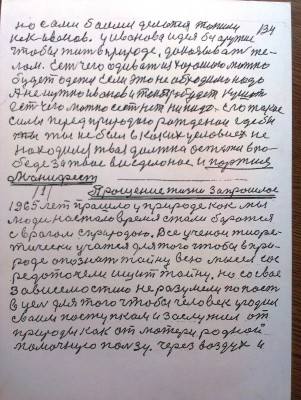 но сами боимся делатся такими 134
как иванов. у иванова идея була такие
чтобы жить в природе, доказывать те-
лом. Ест чего одиватся хорошо можно
будет одети если это необходимо надо
А не нужно иванов и тому будет
ест чего можно ест нет ни надо. его такие
силы перед природою рожденаи где бы
ты ты не был в каких условиях не
находился твая должна остатся по-
беда за твое висделоное и партия
Манифест
Прощение жизни за прошлое
1965 лет прошло у природе как мы
люди настало время стали боротся
с врагом с природою. Все ученои теоре-
тически учатся для того чтобы в при-
роде опознать тайну всю мысел сос
редоточели ищут тайну, но со свае
зависемостию не разумели попост
в цел для того чтобы человек угодил
своим поступкам и заслужил от
природы как от матери родной
помочную ползу. через воздух и